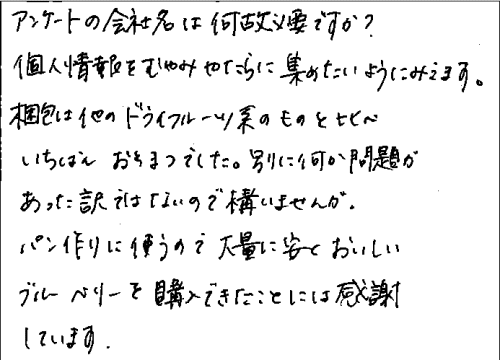 アンケートの会社名は何故必要ですか?
個人情報をむやみやたらに集めたいようにみえます。
梱包は他のドライフルーツ系のものと比べ
いちばん おそまつでした。別に何か問題が
あった訳ではないので構いませんが。
パン作りに使うので大量に安くおいしい
ブルーベリーを購入できたことには感謝
しています.